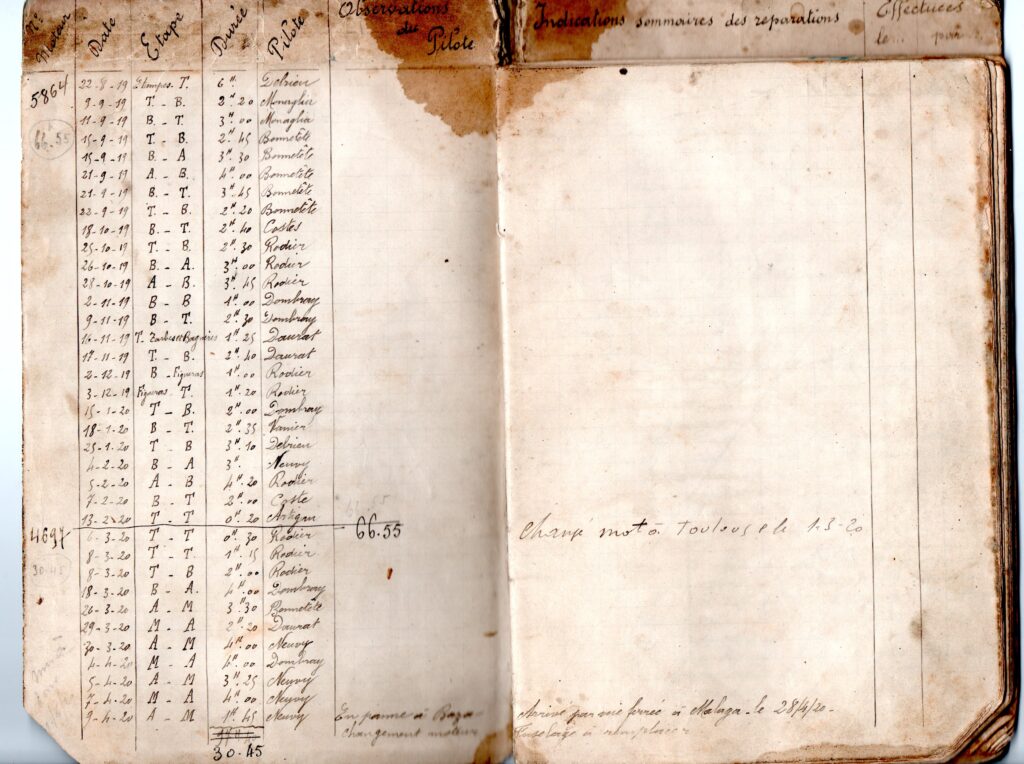 N° Moteur Date Etape Durée Pilote Observations du Pilote Indications sommaires des réparations Effectuées le par
5864 22-8-19 Etampes. T. 6ᴴ Delrieu
66.55 9-9-19 T. - B. 2ᴴ 20 Monaglia
11-9-19 B. - T. 3ᴴ 00 Monaglia
15-9-19 T. - B. 2ᴴ 45 Bonnetête
15-9-19 B. - A 3ᴴ 30 Bonnetête
21-9-19 A. - B. 4ᴴ 00 Bonnetête
21-9-19 B. - T. 3ᴴ 45 Bonnetête
22-9-19 T. - B. 2ᴴ 20 Bonnetête
18-10-19 B. - T. 2ᴴ 40 Costes
25-10-19 T. - B. 2ᴴ 30 Rodier
26-10-19 B. - A. 3ᴴ 00 Rodier
28-10-19 A - B. 3ᴴ 45 Rodier
2-11-19 B - B 1ᴴ 00 Dombray
9-11-19 B. - T. 2ᴴ 30 Dombray
16-11-19 T. Tarbes et Bagnères 1ᴴ 25 Daurat
17-11-19 T. - B. 2ᴴ 40 Daurat
2-12-19 B. - Figueras 1ᴴ 00 Rodier
3-12-19 Figueras T. 1ᴴ 20 Rodier
15-1-20 T - B. 2ᴴ 00 Dombray
18-1-20 B - T. 2ᴴ 35 Vanier
25-1-20 T - B 3ᴴ 10 Delrieu
4-2-20 B - A 3ᴴ Neuvy
5-2-20 A - B 4ᴴ 20 Rodier
7-2-20 B - T 2ᴴ 00 Coste
13-2-20 T - T 0ᴴ 20 Artigau 66.55
4697 6-3-20 T - T 0ᴴ 30 Rodier 66.55 changé mot à Toulouse le 1-3-20
8-3-20 T - T 1ᴴ 15 Rodier
30.45 8-3-20 T - B 2ᴴ 00 Rodier
18-3-20 B - A. 4ᴴ 00 Dombray
26-3-20 A - M 3ᴴ 30 Bonnetête
29-3-20 M - A 2ᴴ 20 Daurat
30-3-20 A - M 4ᴴ 00 Neuvy
4-4-20 M - A 4ᴴ 00 Dombray
5-4-20 A - M 3ᴴ 25 Neuvy
7-4-20 M - A 4ᴴ 00 Neuvy
9-4-20 A - M 1ᴴ 45 Neuvy En panne à Baza Arrivé par voie ferrée à Malaga le 28/4/20-
changement moteur Fuselage à remplacer
30.45